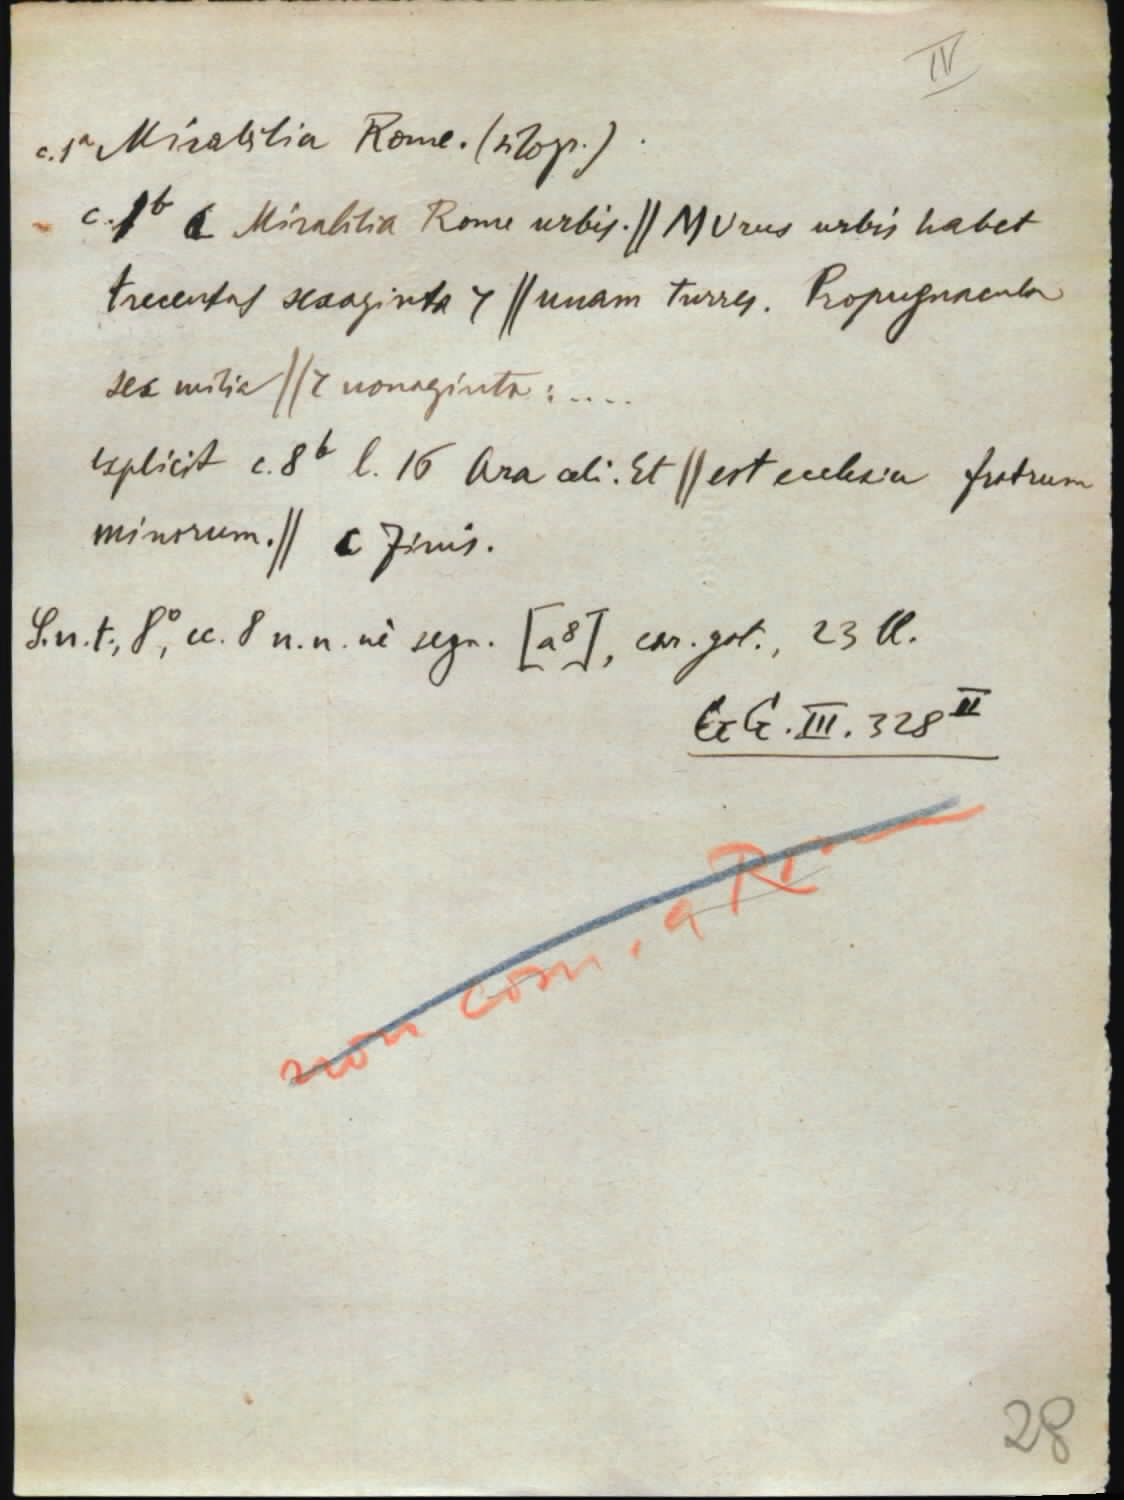 IV
c. 1ᵃ Mirabilia Rome. (silogr.).
c. 1ᵇ C Mirabilia Rome urbis. // MUrus urbis habet
trecentas sexaginta 7 // unam turres. Propugnacula
sex milia // 7 nonaginta: ....
explicit c. 8ᵇ l. 16 Ara celi. Et // est ecclesia fratrum
minorum. // C Finis.
S. n. t., 8°, cc. 8 n. n. nè segn. [a⁸], car. got., 23 ll.
GG. III. 328ᴵᴵ
non com. a
28